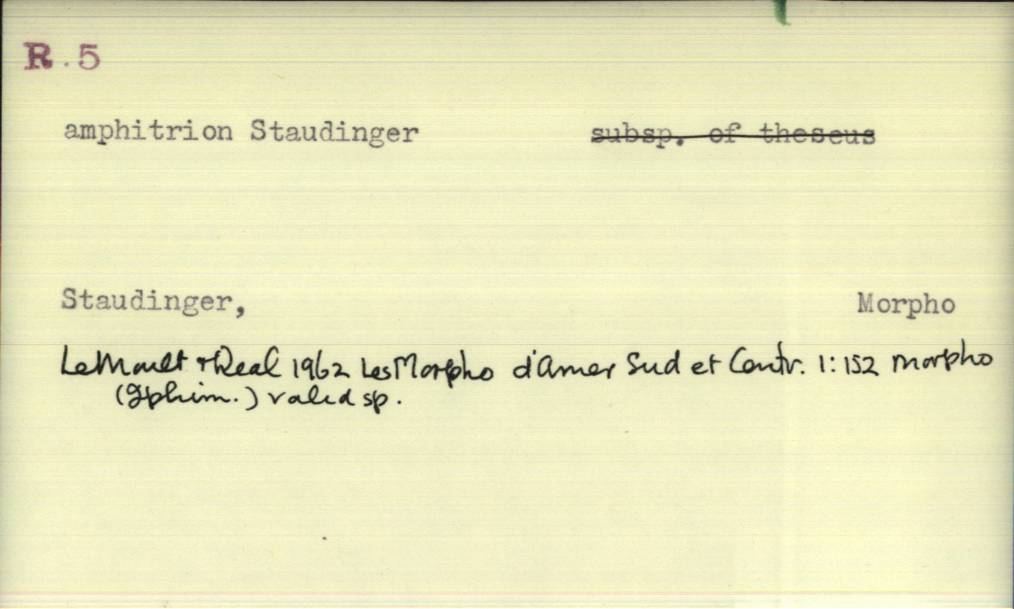 R.5
amphitrion Staudinger subsp. of theseus
Staudinger, Morpho
LeMoult + Real 1962 Les Morpho d'Amer Sud et Centr. 1:152 Morpho
(Iphim.) valid sp.